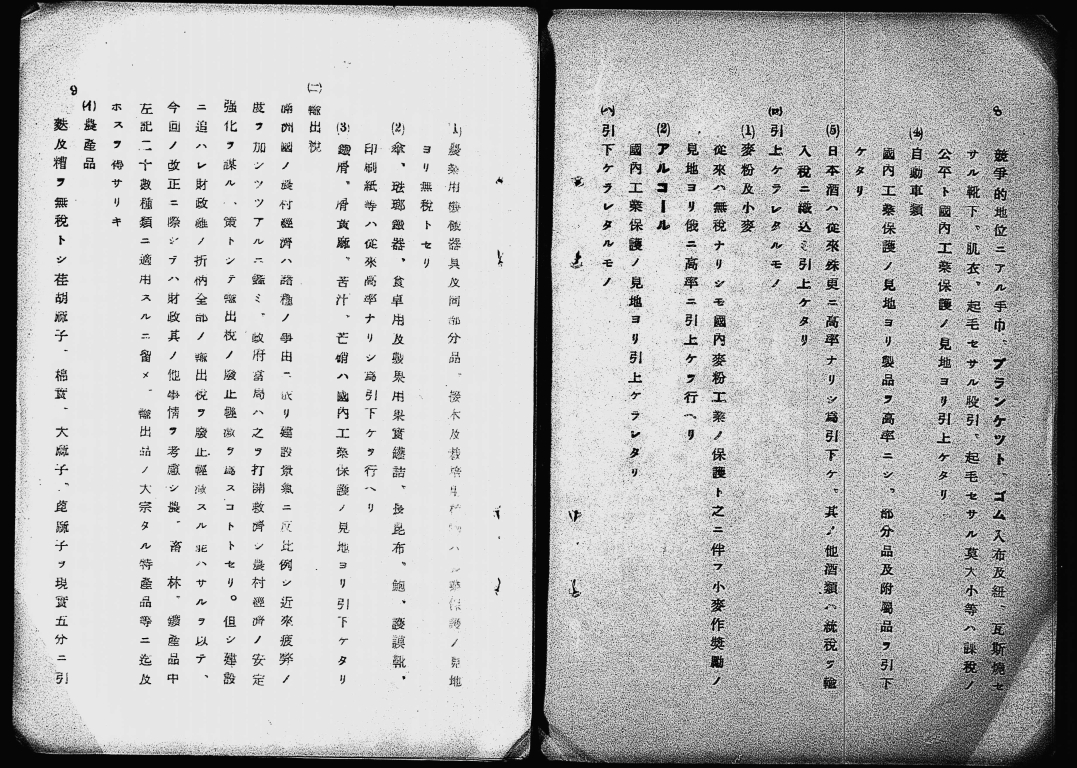 8
競爭的地位ニアル手巾、ブランケット、ゴム入布及紐、瓦斯燒セ
サル靴下、肌衣、起毛セサル股引、起毛セサル莫大小等ハ課稅ノ
公平ト國內工業保護ノ見地ヨリ引上ケタリ
(4)自動車類
國內工業保護ノ見地ヨリ製品ヲ高率ニシ、部分品及附屬品ヲ引下
ケタリ
(5)日本酒ハ從來殊更ニ高率ナリシ爲引下ケ、其ノ他酒類ハ統稅ヲ輸
入稅ニ織込ミ引上ケタリ
(ロ)引上ケラレタルモノ
(1)麥粉及小麥
從來ハ無稅ナリシモ國內麥粉工業ノ保護ト之ニ伴フ小麥作奬勵ノ
見地ヨリ俄ニ高率ニ引上ケヲ行ヘリ
(2)アルコール
國內工業保護ノ見地ヨリ引上ケラレタリ
(ハ)引下ケラレタルモノ
(1)農業用機械器具及同部分品、接木及ノ見地
ヨリ無稅トセリ
(2)傘、琺瑯鐵器、食卓用及製菓用果實罐詰、長昆布、鮑、護謨靴、
印刷紙等ハ從來高率ナリシ爲引下ケヲ行ヘリ
(3)鐵屑、屑黃銅、苦汁、芒硝ハ國內工業保護ノ見地ヨリ引下ケタリ
(二)輸出稅
滿洲國ノ農村經濟ハ諸種ノ事由ニ依リ建設景氣ニ反比例シ近來疲弊ノ
度ヲ加シツツアルニ鑑ミ、政府當局ハ之ヲ打開救濟シ農村經濟ノ安定
強化ヲ謀ル一策トシテ輸出稅ノ廢止輕減ヲ爲スコトセリ。但シ建設
ニ追ハレ財政難ノ折柄全部ノ輸出稅ヲ廢止輕減スル能ハサルヲ以テ、
今回ノ改正ニ際シテハ財政其ノ他事情ヲ考慮シ農、畜、林、鑛產品中
左記二十數種類ニ適用スルニ留メ、輸出品ノ大宗タル特產品等ニ迄及
ホスヲ得サリキ
(イ)農產品
麩及糟ヲ無稅トシ荏胡麻子、棉實、大麻子、蓖麻子ヲ現實五分ニ引
9